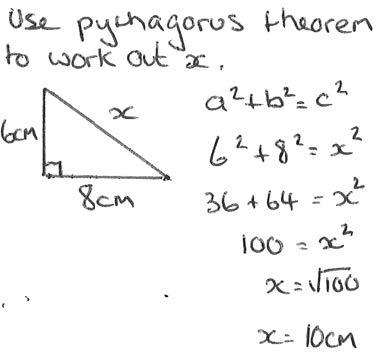 Use pythagorus theorem
to work out x.
6cm
x
8cm
a²+b²=c²
6²+8²=x²
36+64=x²
100=x²
x=√100
x=10cm